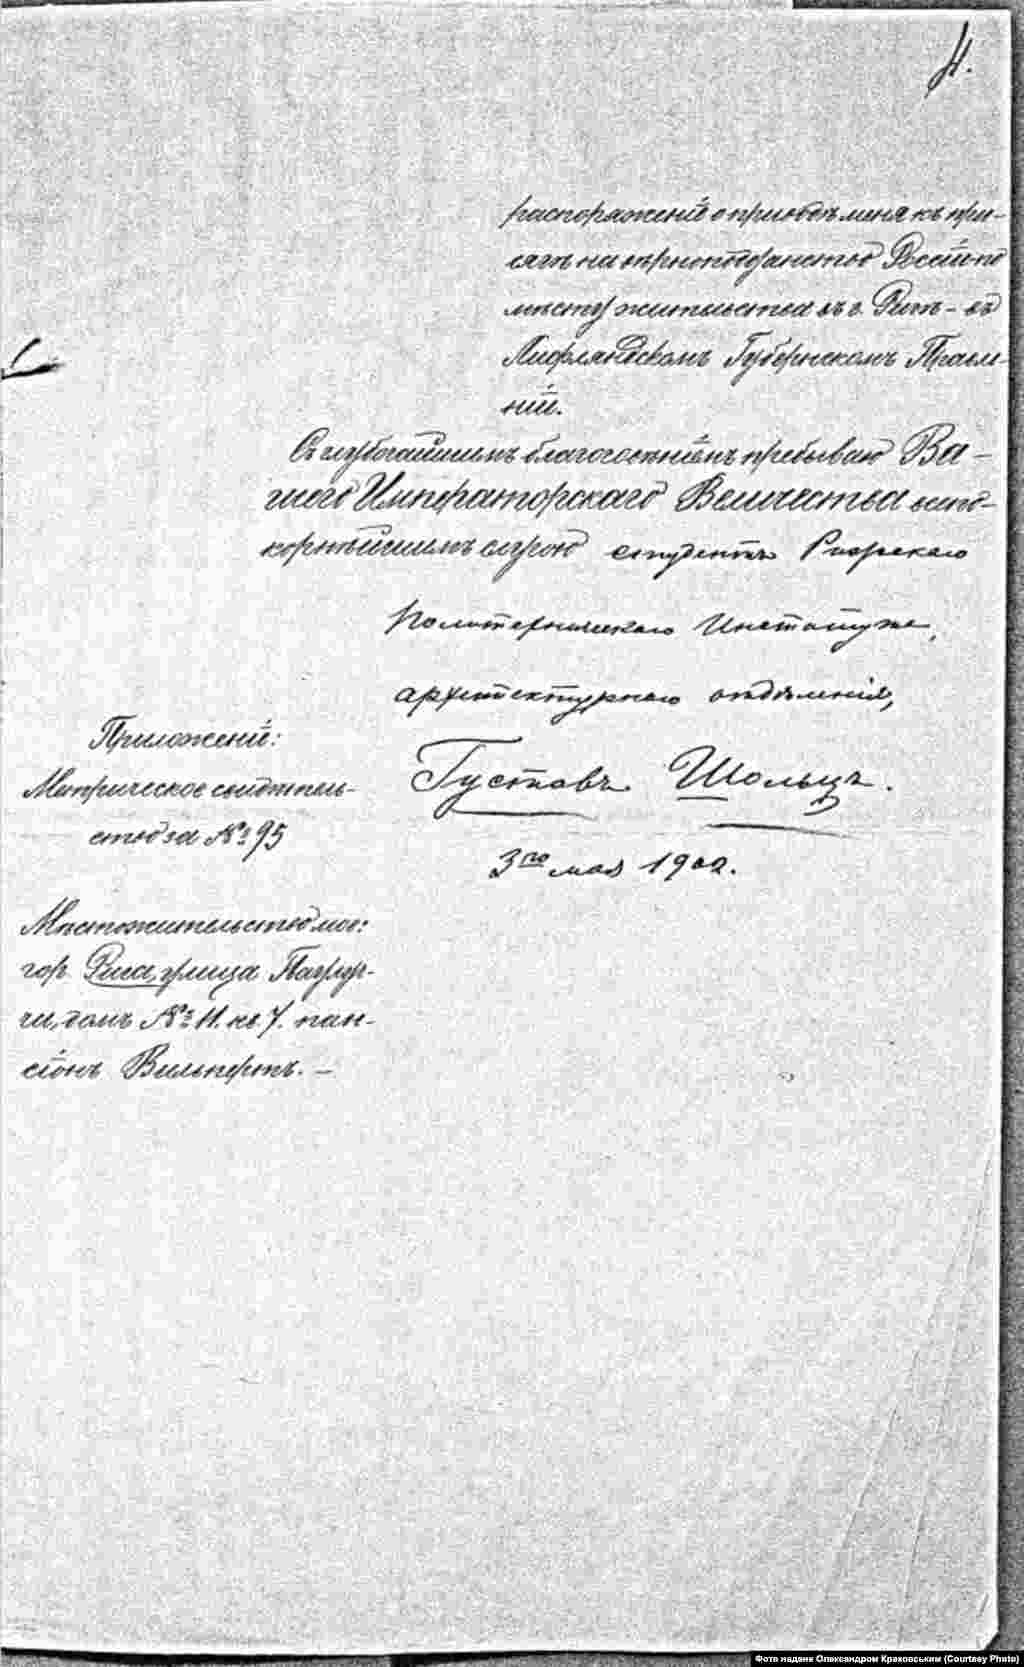 4.
распоряженіе о приводѣ меня къ при-
сягѣ на вѣрноподданство Россіи по
мѣсту жительства въ г. Ригѣ – въ
Лифляндскомъ Губернскомъ Правле-
ніи.
Съ глубочайшимъ благоговѣніемъ пребываю Ва-
шего Императорскаго Величества всепо-
корнѣйшимъ слугою студентъ Рижскаго
Политехническаго Института,
архитектурнаго отдѣленія,
Густавъ Шольцъ.
3го мая 1902.
Приложеніе:
Метрическое свидѣтель-
ство за № 95
Мѣстожительство мое:
гор. Рига, улица
домъ № 11. кв. 7. пан-
сіонъ Вильпертъ. –
Фото надане Олександром Краковським (Courtesy Photo)